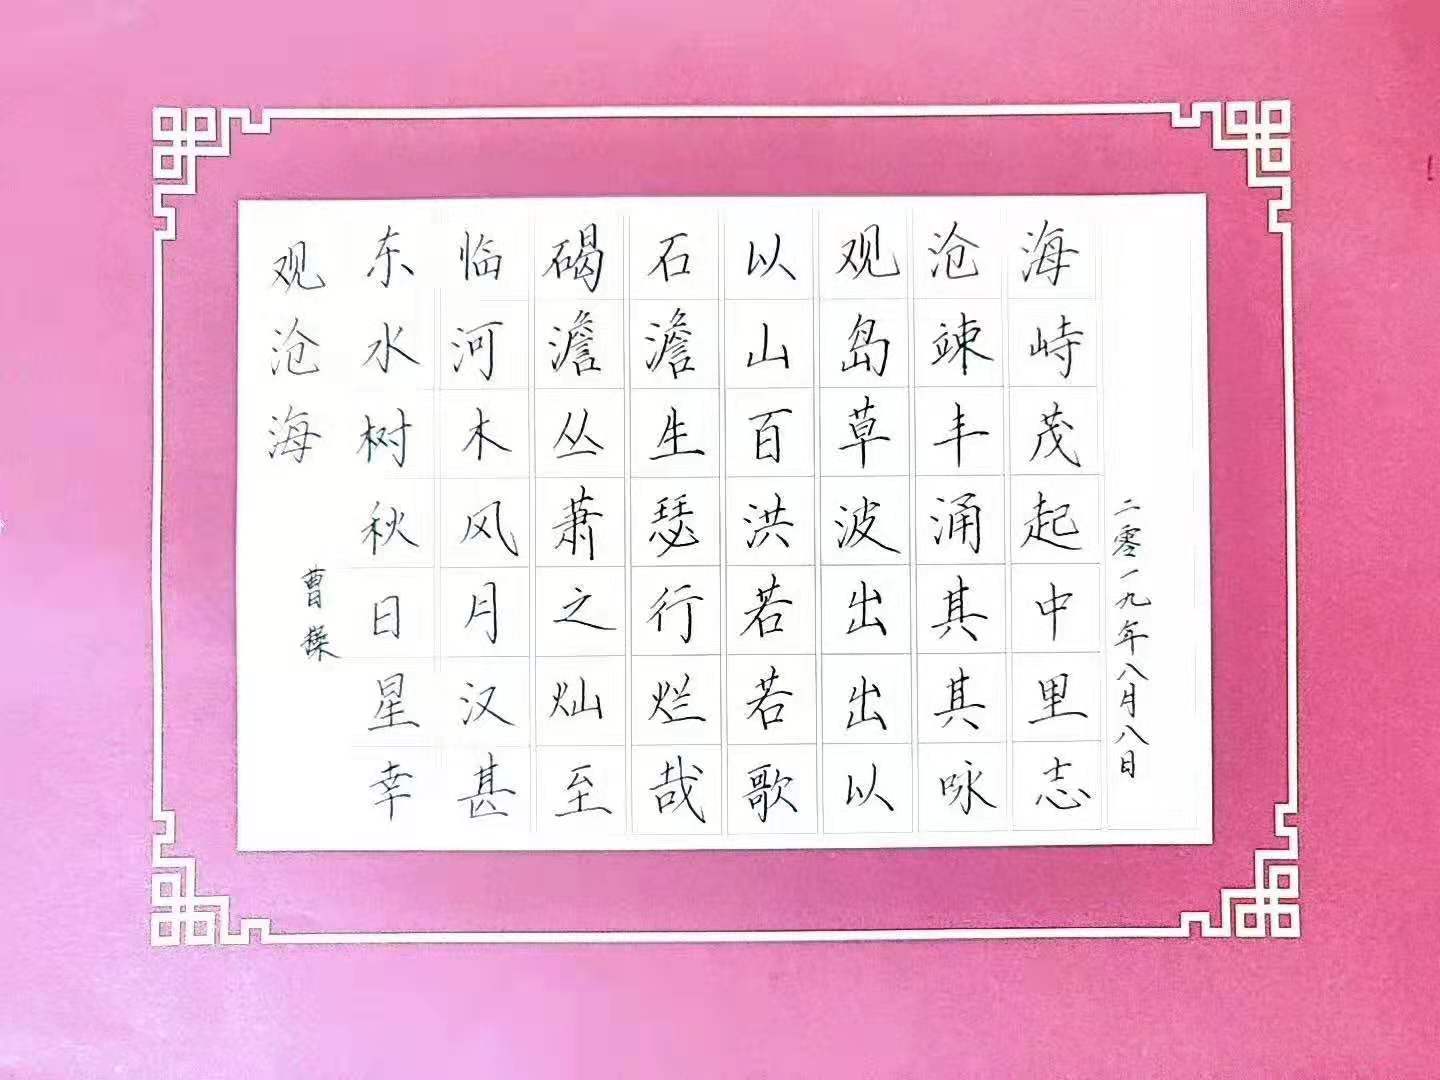 观沧海
曹操
东临碣石以观沧海
水河澹澹山岛竦峙
树木丛生百草丰茂
秋风萧瑟洪波涌起
日月之行若出其中
星汉灿烂若出其里
幸甚至哉歌以咏志
二零一九年八月八日